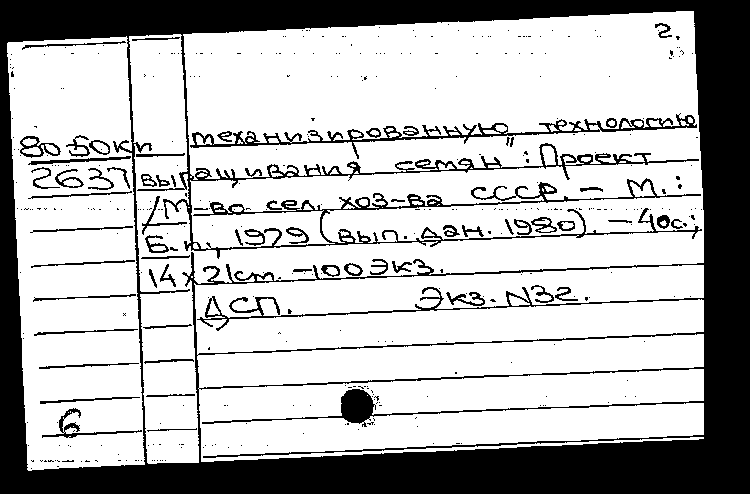 2.
механизированную технологию
80-50кп
2637
выращивания семян": Проект
/М-во сел. хоз-ва СССР. – М.:
Б.и., 1979 (вып. дан. 1980). – 40с.;
14х21см. – 100 экз.
ДСП. Экз. N32.
6